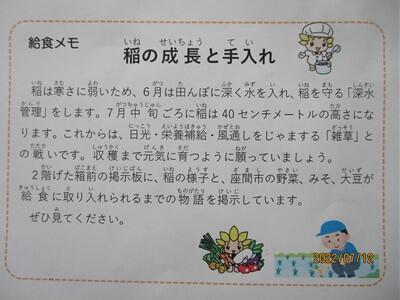 給食メモ
稲の成長と手入れ
稲は寒さに弱いため、6月は田んぼに深く水を入れ、稲を守る「深水
管理」をします。7月中旬ごろに稲は40センチメートルの高さにな
ります。これからは、日光・栄養補給・風通しをじゃまする「雑草」と
の戦いです。収穫まで元気に育つように願っていましょう。
2階げた箱前の掲示板に、稲の様子と、座間市の野菜、みそ、大豆が
給食に取り入れられるまでの物語を掲示しています。
ぜひ見てください。
2022/07/12